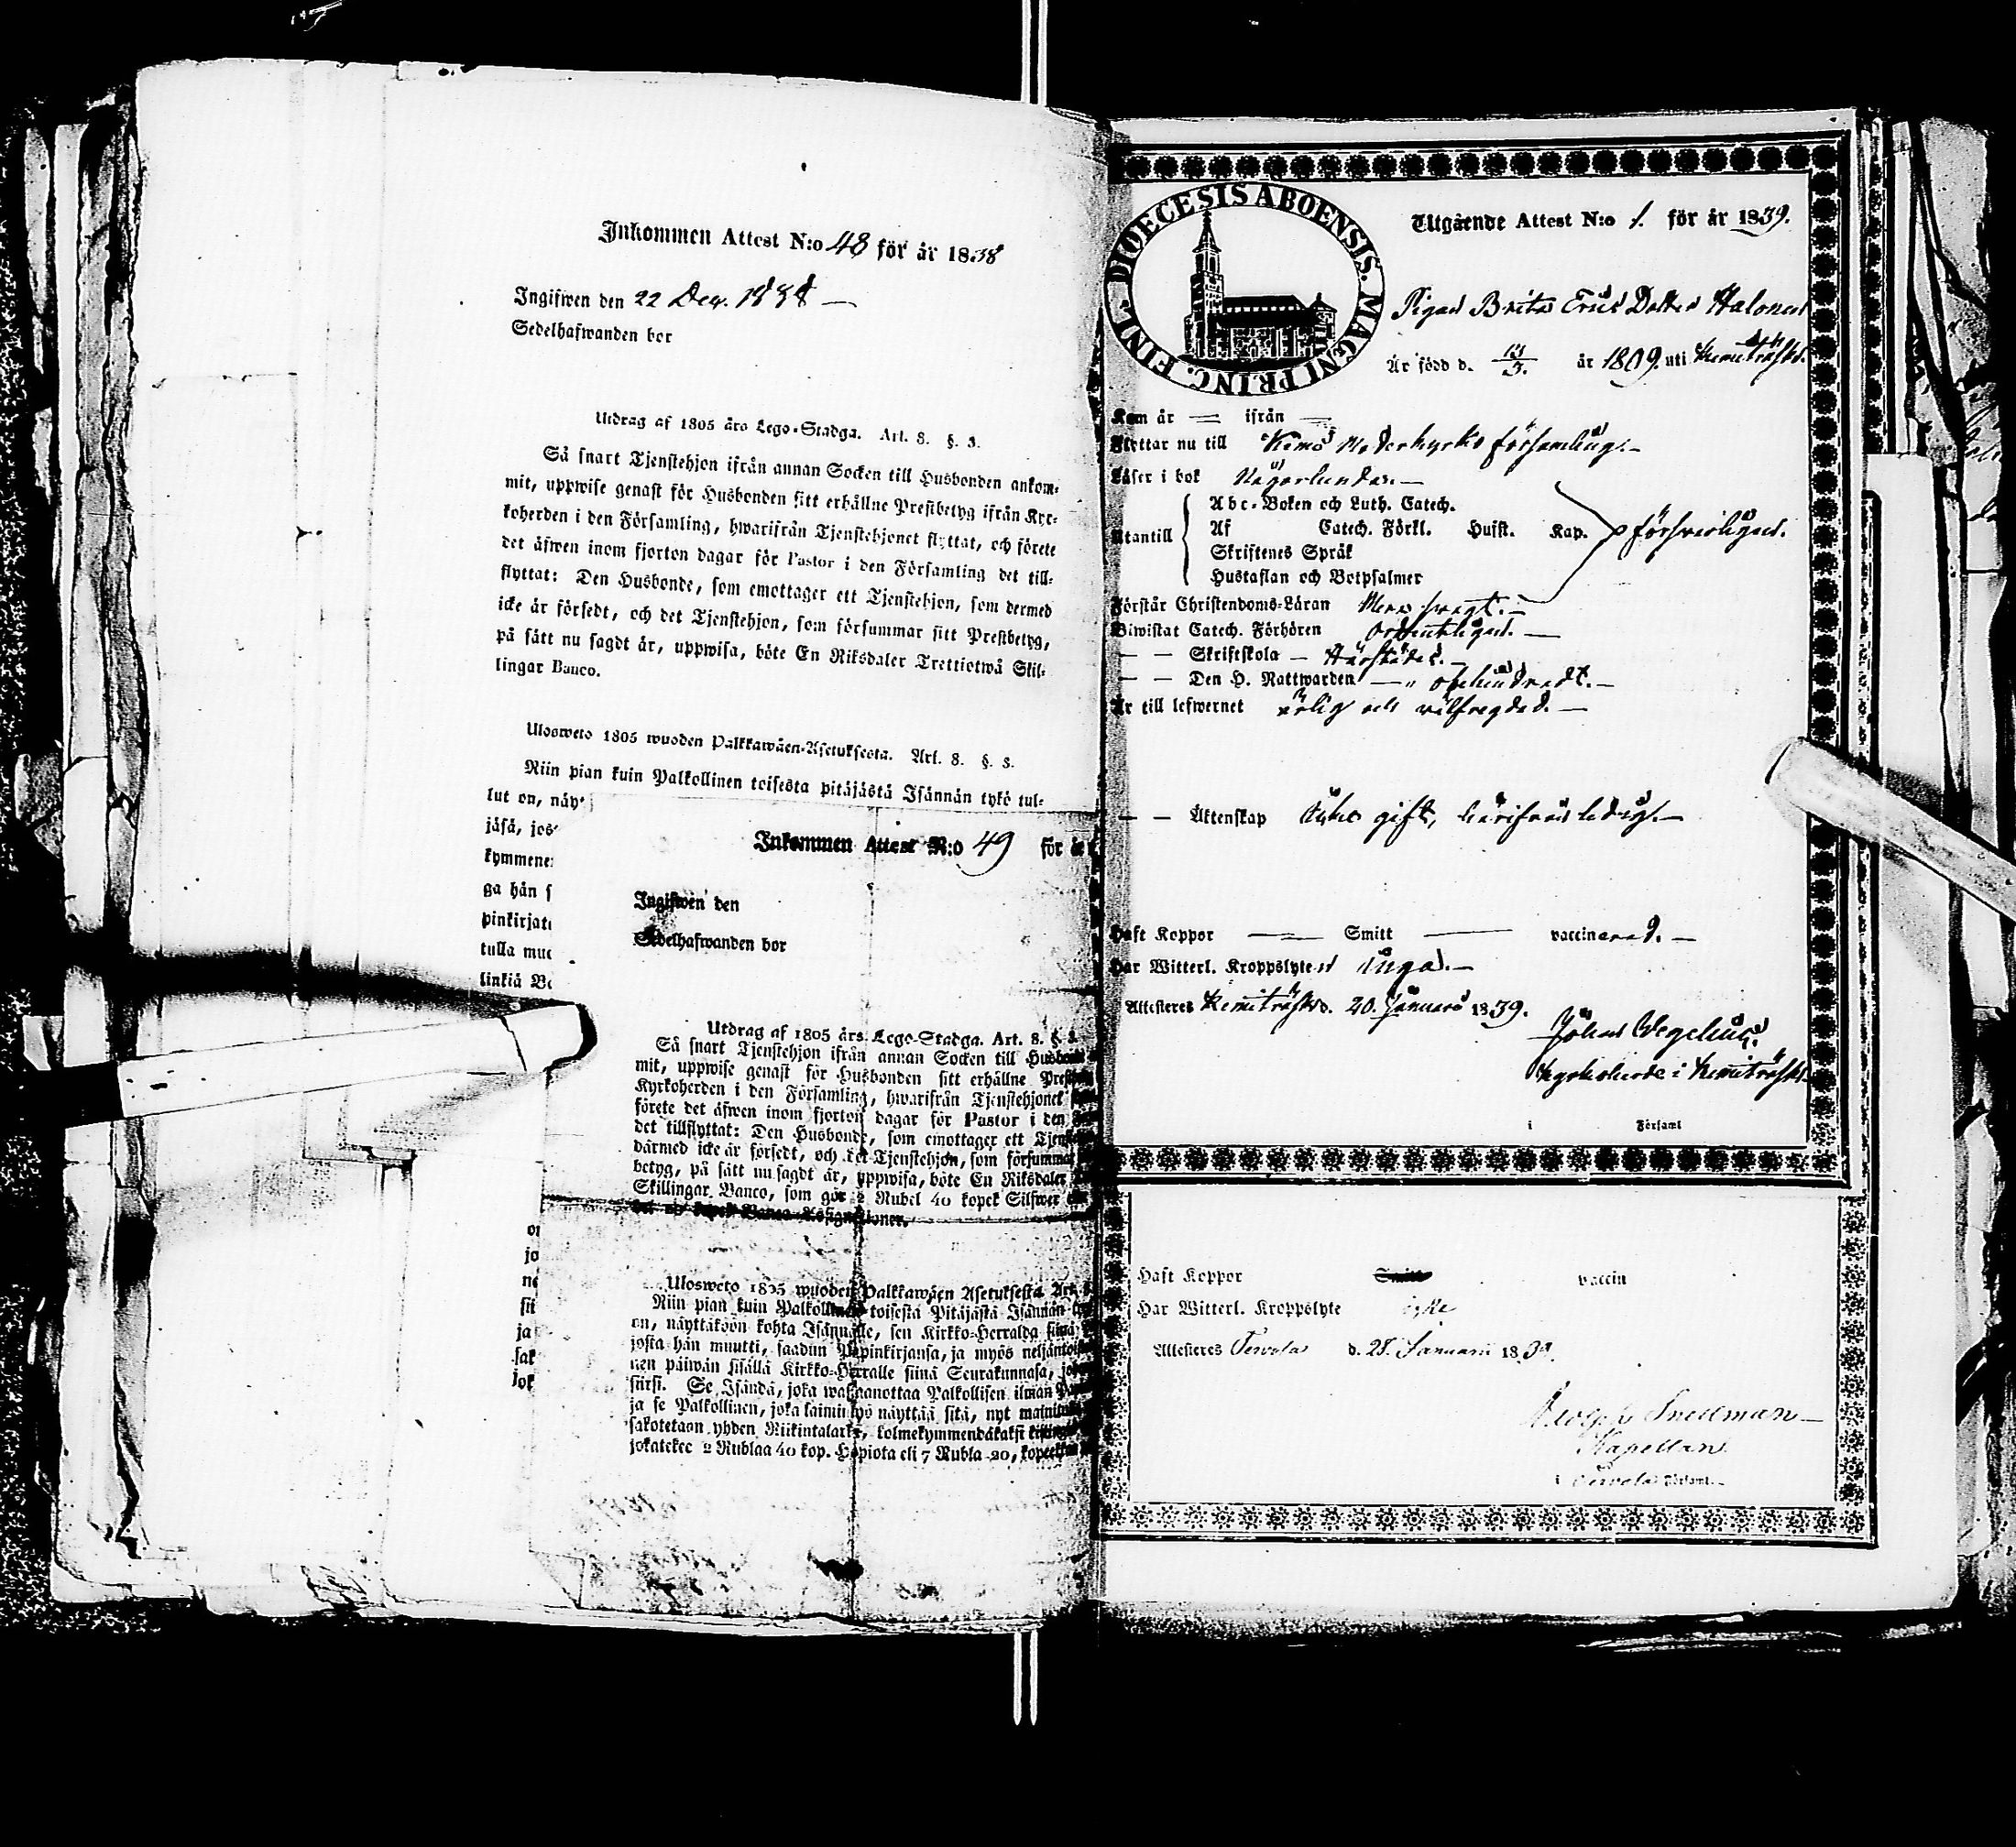 Inkommen Attest N:o 48 för år 1838
Ingifwen den 22 Dec. 1838 —
Sedelhafwanden bor
Utdrag af 1805 års Lego-Stadga. Art. 8. §. 3.
Så snart Tjenstehjon ifrån annan Socken till Husbonden ankom-
mit, uppwise genast för Husbonden sitt erhållne Prestbetyg ifrån Kyr-
koherden i den Församling, hwarifrån Tjenstehjonet flyttat, och förete
det äfwen inom fjorton dagar för Pastor i den Församling det till-
flyttat: Den Husbonde, som emottager ett Tjenstehjon, som dermed
icke är försedt, och det Tjenstehjon, som försummar sitt Prestbetyg,
på sätt nu sagdt är, uppwisa, böte En Riksdaler Trettiotwå Skil-
lingar Banco.
Ulosweto 1805 wuoden Palkkawäen-Asetuksesta. Art. 8. §. 3.
Niin pian kuin Palkollinen toisesta pitäjästä Isännän tykö tul-
lut on, näy
jäsä, jos
kymmene
ga hän s
pinkirjat
tulla muc
linkiä B
Inkommen Attest N:o 49 för år
Ingifwen den
Sedelhafwanden bor
Utdrag af 1805 års Lego-Stadga. Art. 8. §. 3.
Så snart Tjenstehjon ifrån annan Socken till Husbond
mit, uppwise genast för Husbonden sitt erhållne Prest
Kyrkoherden i den Församling, hwarifrån Tjenstehjonet
förete det äfwen inom fjorton dagar för Pastor i den
det tillflyttat: Den Husbonde, som emottager ett Tjen
därmed icke är försedt, och det Tjenstehjon, som försummar
betyg, på sätt nu sagdt är, uppwisa, böte En Riksdaler
Skillingar Banco, som gör 2 Rubel 40 kopek Silfwer
kopek Banco Assignationer.
Ulosweto 1805 wuoden Palkkawäen Asetuksesta Art.
Niin pian kuin Palkollinen toisesta Pitäjästä Isännän
on, näyttäköön kohta Isännälle, sen Kirkko-Herralda siinä
josta hän muutti, saadun Papinkirjansa, ja myös neljäntoi
nen päiwän sisällä Kirkko-Herralle siinä Seurakunnasa,
siirsi. Se Isändä, joka wastaanottaa Palkollisen ilman
ja se Palkollinen, joka laiminlyö näyttää sitä, nyt
sakotetaan yhden Riikintalarin, kolmekymmendäkaksi
jokatekee 2 Rublaa 40 kop. Hopiota eli 7 Rubla 20, kopeekkaa
DIOECESIS ABOENSIS. MAGNI PRINC. FINL.
Utgående Attest N:o 1. för år 1839.
Pigan Brita Erics Dotter Halonen
Är född d. år 1809. uti Kemiträsk.
Kom år — ifrån —
Flyttar nu till Kemi Moderkyrko församling. —
Läser i bok Någorlunda. —
Utantill
Abc-Boken och Luth. Catech.
Af Catech. Förkl. Hufst. Kap. försvarligen.
Skriftenes Språk
Hustaflan och Botpsalmer
Förstår Christendoms-Läran svagt. —
Biwistat Catech. Förhören Ordentligen. —
— — Skriftskola —
— — Den H. Nattwarden — obehindradt. —
Är till lefwernet ärlig och välfregdad. —
— — Äktenskap Icke gift, härifrån ledig. —
Haft Koppor — Smitt — vaccinerad. —
Har Witterl. Kroppslyten inga. —
Attesteres Kemiträsk d. 20. Januari 1839.
Johan Wegelius.
Kyrkoherde i Kemiträsk
i Församl
Haft Koppor Smitt vaccin
Har Witterl. Kroppslyte icke
Attesteres Tervola d. 28. Januarii 1839.
Adolph Snellman —
Kapellan
i Tervola Församl. —